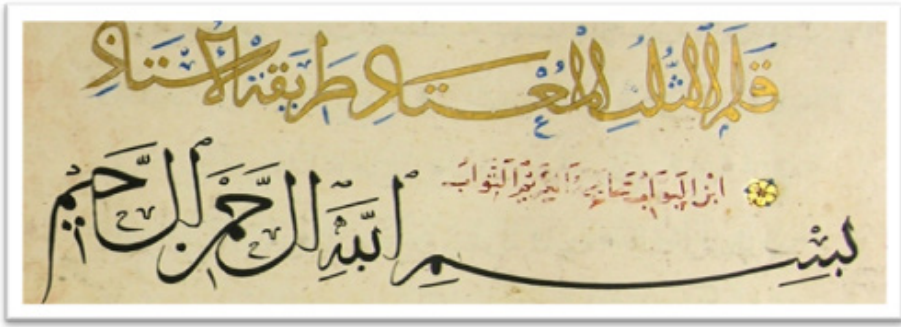 قلم الثلث المعتاد طريقة الأستاذ
ابن البواب الثواب
بسم الله الرحمن الرحيم